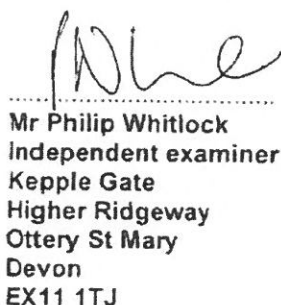 Mr Philip Whitlock
Independent examiner
Kepple Gate
Higher Ridgeway
Ottery St Mary
Devon
EX11 1TJ